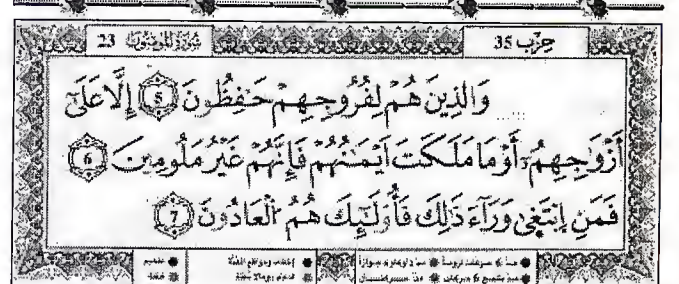 حِزْب 35
سُورَةُ الْمُؤْمِنُونَ 23
وَالذِينَ هُمْ لِفُرُوجِهِمْ حَٰفِظُونَ 5 إِلَّا عَلَىٰٓ
أَزْوَٰجِهِمُۥٓ أَوْ مَا مَلَكَتَ اَيْمَٰنُهُمْ فَإِنَّهُمْ غَيْرُ مَلُومِينَ 6
فَمَنِ اِبْتَغَىٰ وَرَآءَ ذَٰلِكَ فَأُوْلَٰٓئِكَ هُمُ الْعَادُونَ 7